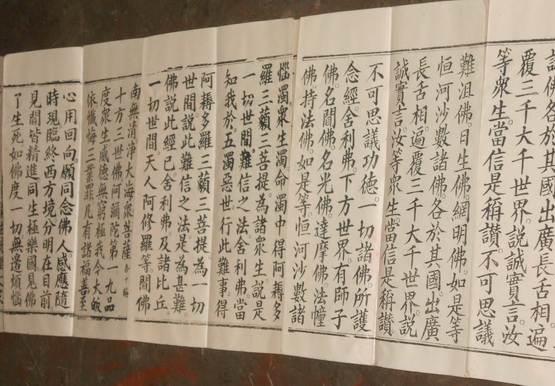 諸佛各於其國出廣長舌相遍
覆三千大千世界說誠實言。汝
等衆生當信是稱讚不可思議
難沮佛。日生佛。網明佛。如是等
恒河沙數諸佛各於其國出廣
長舌相遍覆三千大千世界說
誠實言汝等衆生當信是稱讚
不可思議功德。一切諸佛所護
念經舍利弗下方世界有師子
佛。名聞佛。名光佛。達摩佛。法幢
佛。持法佛。如是等恒河沙數諸
惱濁衆生濁命濁中得阿耨多
羅三藐三菩提為諸衆生說是
一切世間難信之法舍利弗當
知我於五濁惡世行此難事得
阿耨多羅三藐三菩提為一切
世間說此難信之法是為甚難
佛說此經已。舍利弗及諸比丘
一切世間天人阿修羅等聞佛
南無清淨大海衆菩薩
十方三世佛阿彌陀第一九品
度衆生威德無窮極我今大皈
依懺悔三業罪凡有諸福善至
心用回向願同念佛人感應隨
時現臨終西方境分明在目前
見聞皆精進同生極樂國見佛
了生死如佛度一切無邊煩惱